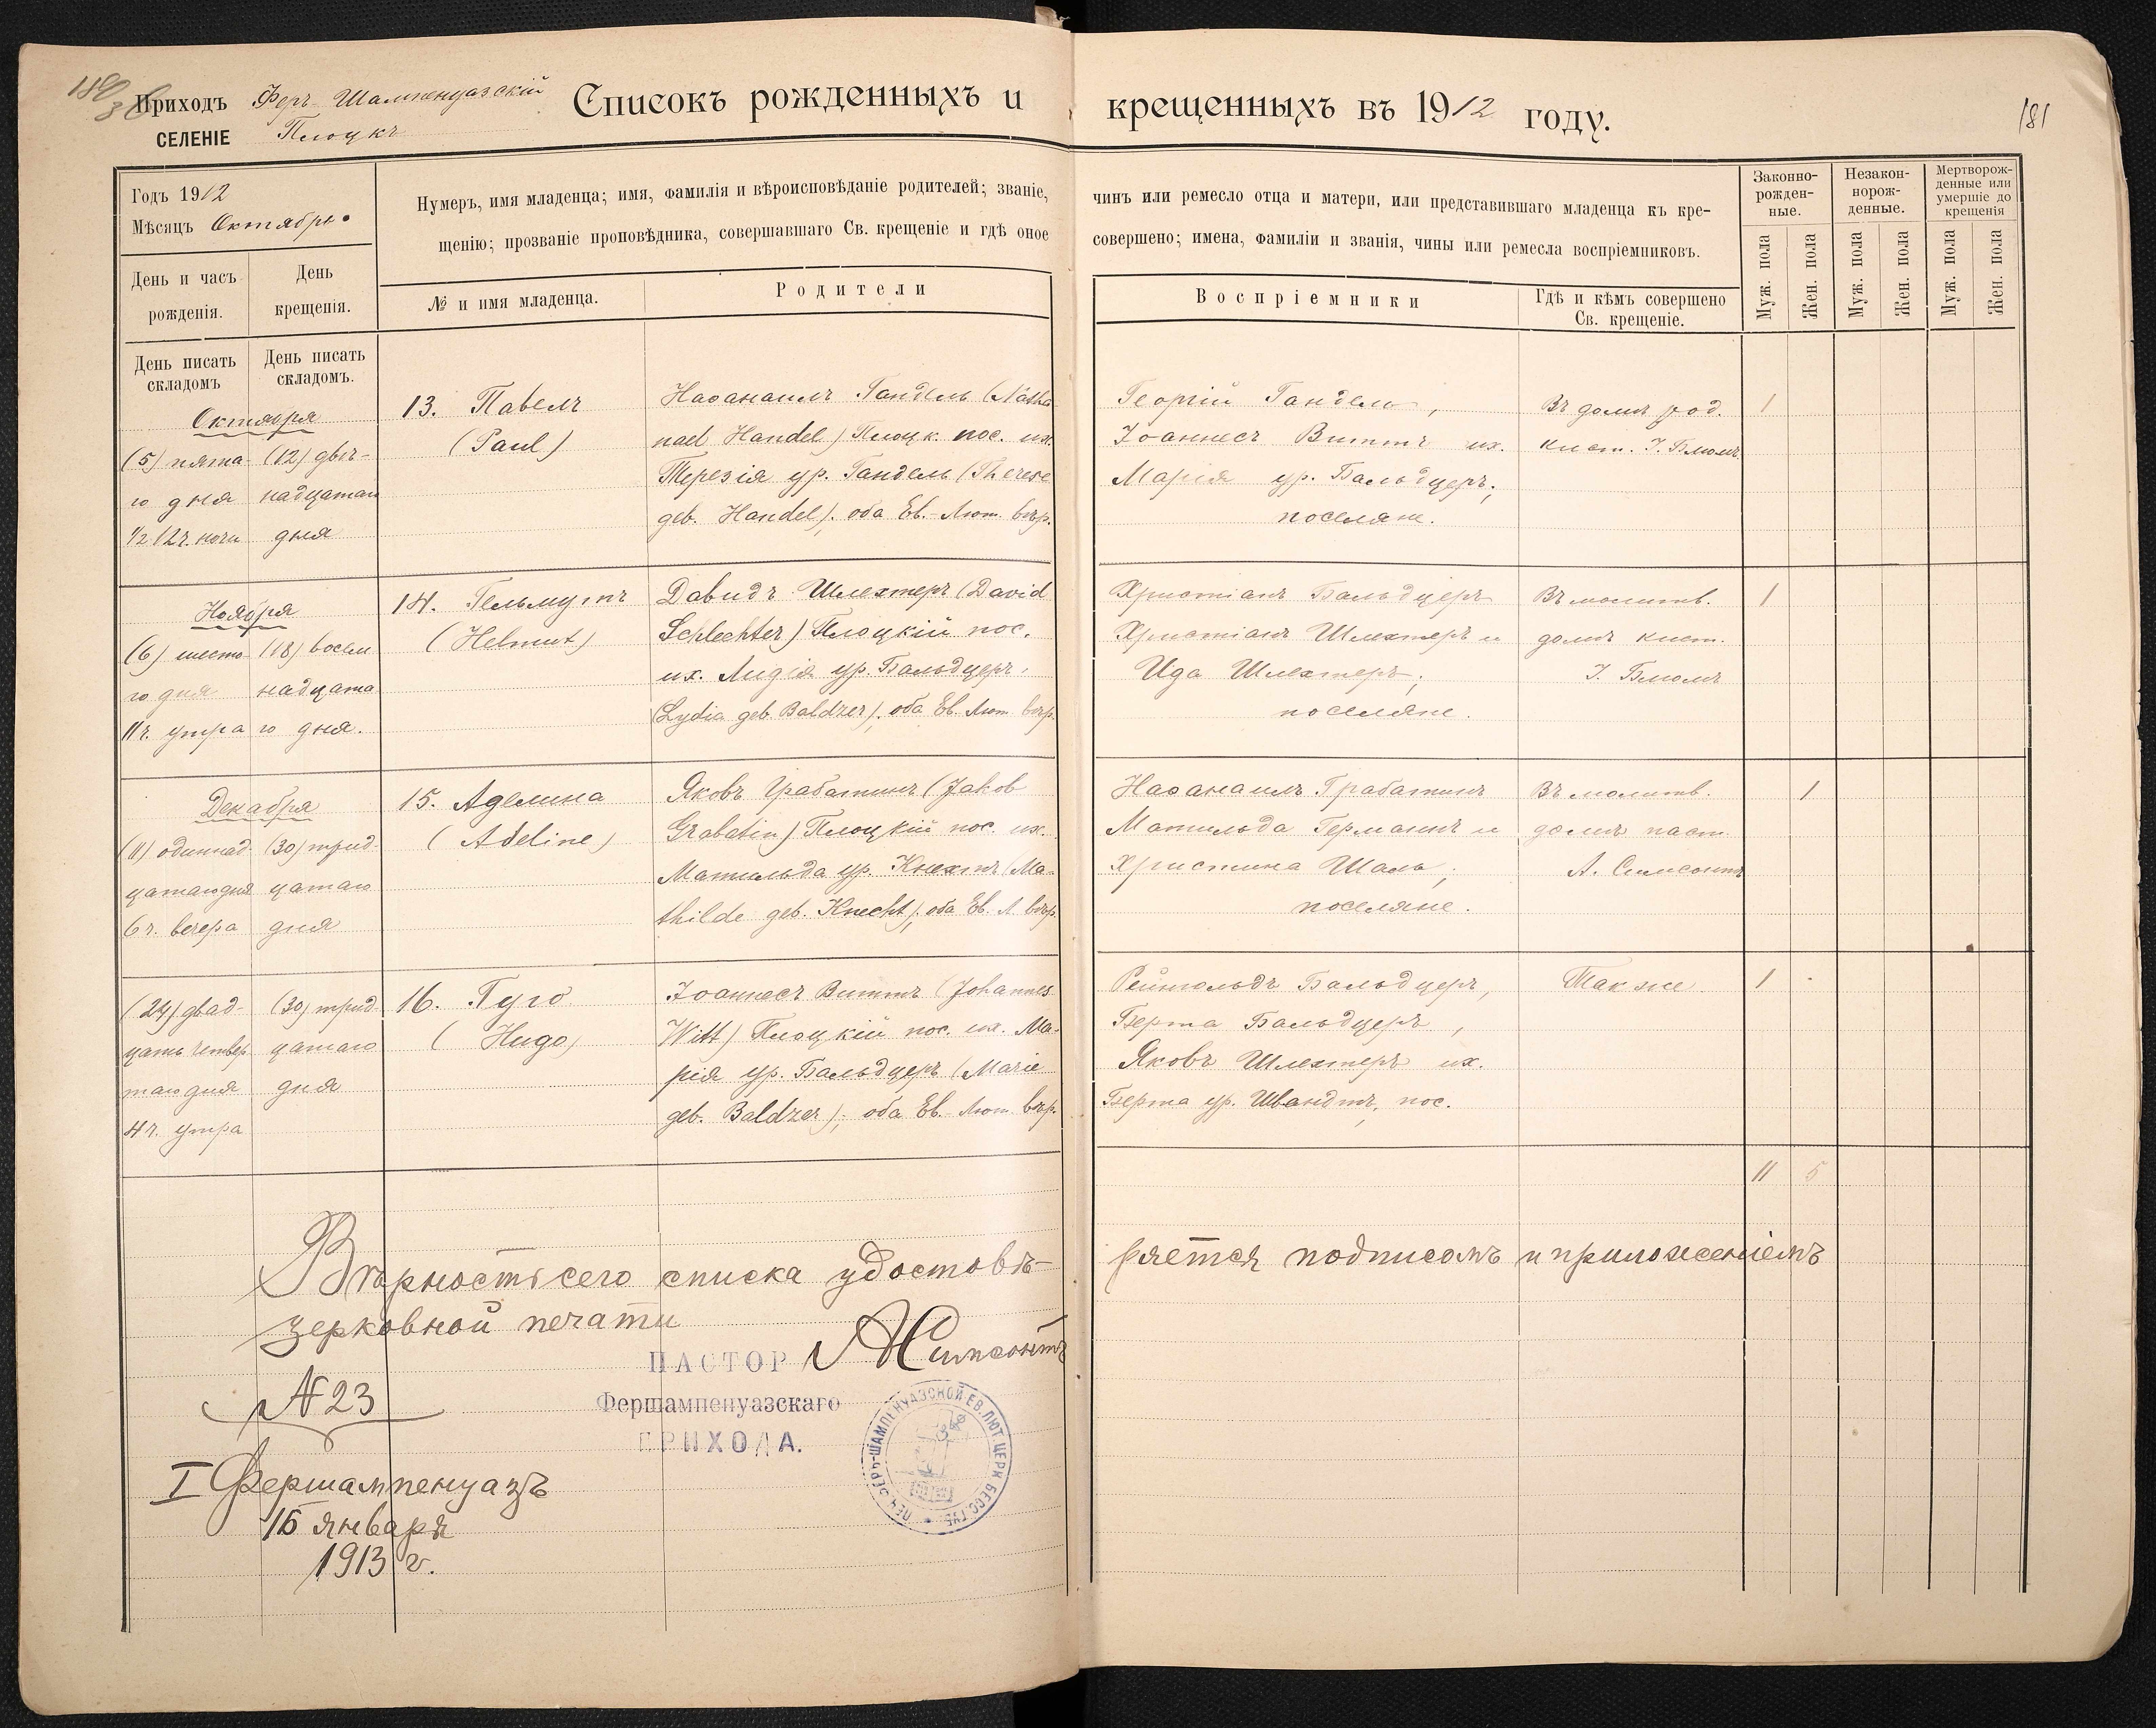 Приходъ Феръ-Шампенуазскій
СЕЛЕНІЕ Плоцкъ
Списокъ рожденныхъ и крещенныхъ въ 1912 году.
181
Годъ 1912
Мѣсяцъ Октябрь
День и часъ рожденія.
День крещенія.
Нумеръ, имя младенца; имя, фамилія и вѣроисповѣданіе родителей; званіе, чинъ или ремесло отца и матери, или представившаго младенца къ кре-
щенію; прозваніе проповѣдника, совершавшаго Св. крещеніе и гдѣ оное совершено; имена, фамиліи и званія, чины или ремесла воспріемниковъ.
№ и имя младенца.
Родители
Воспріемники
Гдѣ и кѣмъ совершено
Св. крещеніе.
Законно-
рожден-
ные.
Незакон-
норож-
денные.
Мертворож-
денные или
умершіе до
крещенія
Муж. пола
Жен. пола
Муж. пола
Жен. пола
Муж. пола
Жен. пола
День писать
складомъ
День писать
складомъ.
Октября
(5) пята-
го дня
½ 12 ч. ночи
(12) двѣ-
надцатаго
дня
13. Павелъ
(Paul)
Наѳанаилъ Гандель (Natha-
nael Handel) Плоцк. пос. их.
Терезія ур. Гандель (Therese
geb. Handel); оба Ев.-Лют. вѣр.
Георгій Гандель,
Іоаннесъ Виттъ их.
Марія ур. Бальдцеръ;
поселяне.
Въ домѣ род.
кист. І. Блюмъ
1
Ноября
(6) шесто-
го дня
11 ч. утра
(18) восем
надцата
го дня.
14. Гельмутъ
(Helmut)
Давидъ Шлехтеръ (David
Schlechter) Плоцкій пос.
их. Лидія ур. Бальдцеръ
(Lydia geb. Baldzer); оба Ев. Лют. вѣр.
Христіанъ Бальдцеръ
Христіанъ Шлехтеръ и
Ида Шлехтеръ;
поселяне.
Въ молитв.
домѣ кист.
І. Блюмъ
1
Декабря
(11) одиннад-
цатаго дня
6 ч. вечера
(30) трид-
цатаго
дня
15. Аделина
(Adeline)
Яковъ Грабатинъ (Jakob
Grabatin) Плоцкій пос. их.
Матильда ур. Кнехтъ (Ma-
thilde geb. Knecht); оба Ев. Л. вѣр.
Наѳанаилъ Грабатинъ
Матильда Германнъ и
Христина Шаль;
поселяне.
Въ молитв.
домѣ паст.
А. Симсонъ
1
(24) двад-
цать четвер
таго дня
4 ч. утра
(30) трид-
цатаго
дня
16. Гуго
(Hugo)
Іоаннесъ Виттъ (Johannes
Witt) Плоцкій пос. их. Ма-
рія ур. Бальдцеръ (Marie
geb. Baldzer); оба Ев. Лют. вѣр.
Рейнгольдъ Бальдцеръ,
Берта Бальдцеръ,
Яковъ Шлехтеръ их.
Берта ур. Швандтъ, пос.
Также
1
11 5
Вѣрность сего списка удостовѣ-ряется подписомъ и приложеніемъ
зерковной печати
ПАСТОР
Фершампенуазскаго
ПРИХОДА.
№ 23
I Фершампенуазъ
15 января
1913 г.